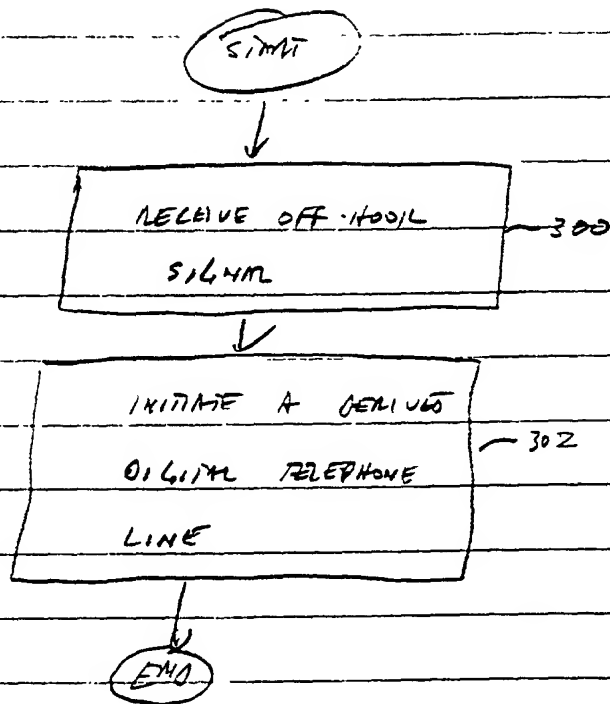 START
RECEIVE OFF-HOOK
300
SIGNAL
INITIATE A DERIVED
DIGITAL TELEPHONE
302
LINE
END